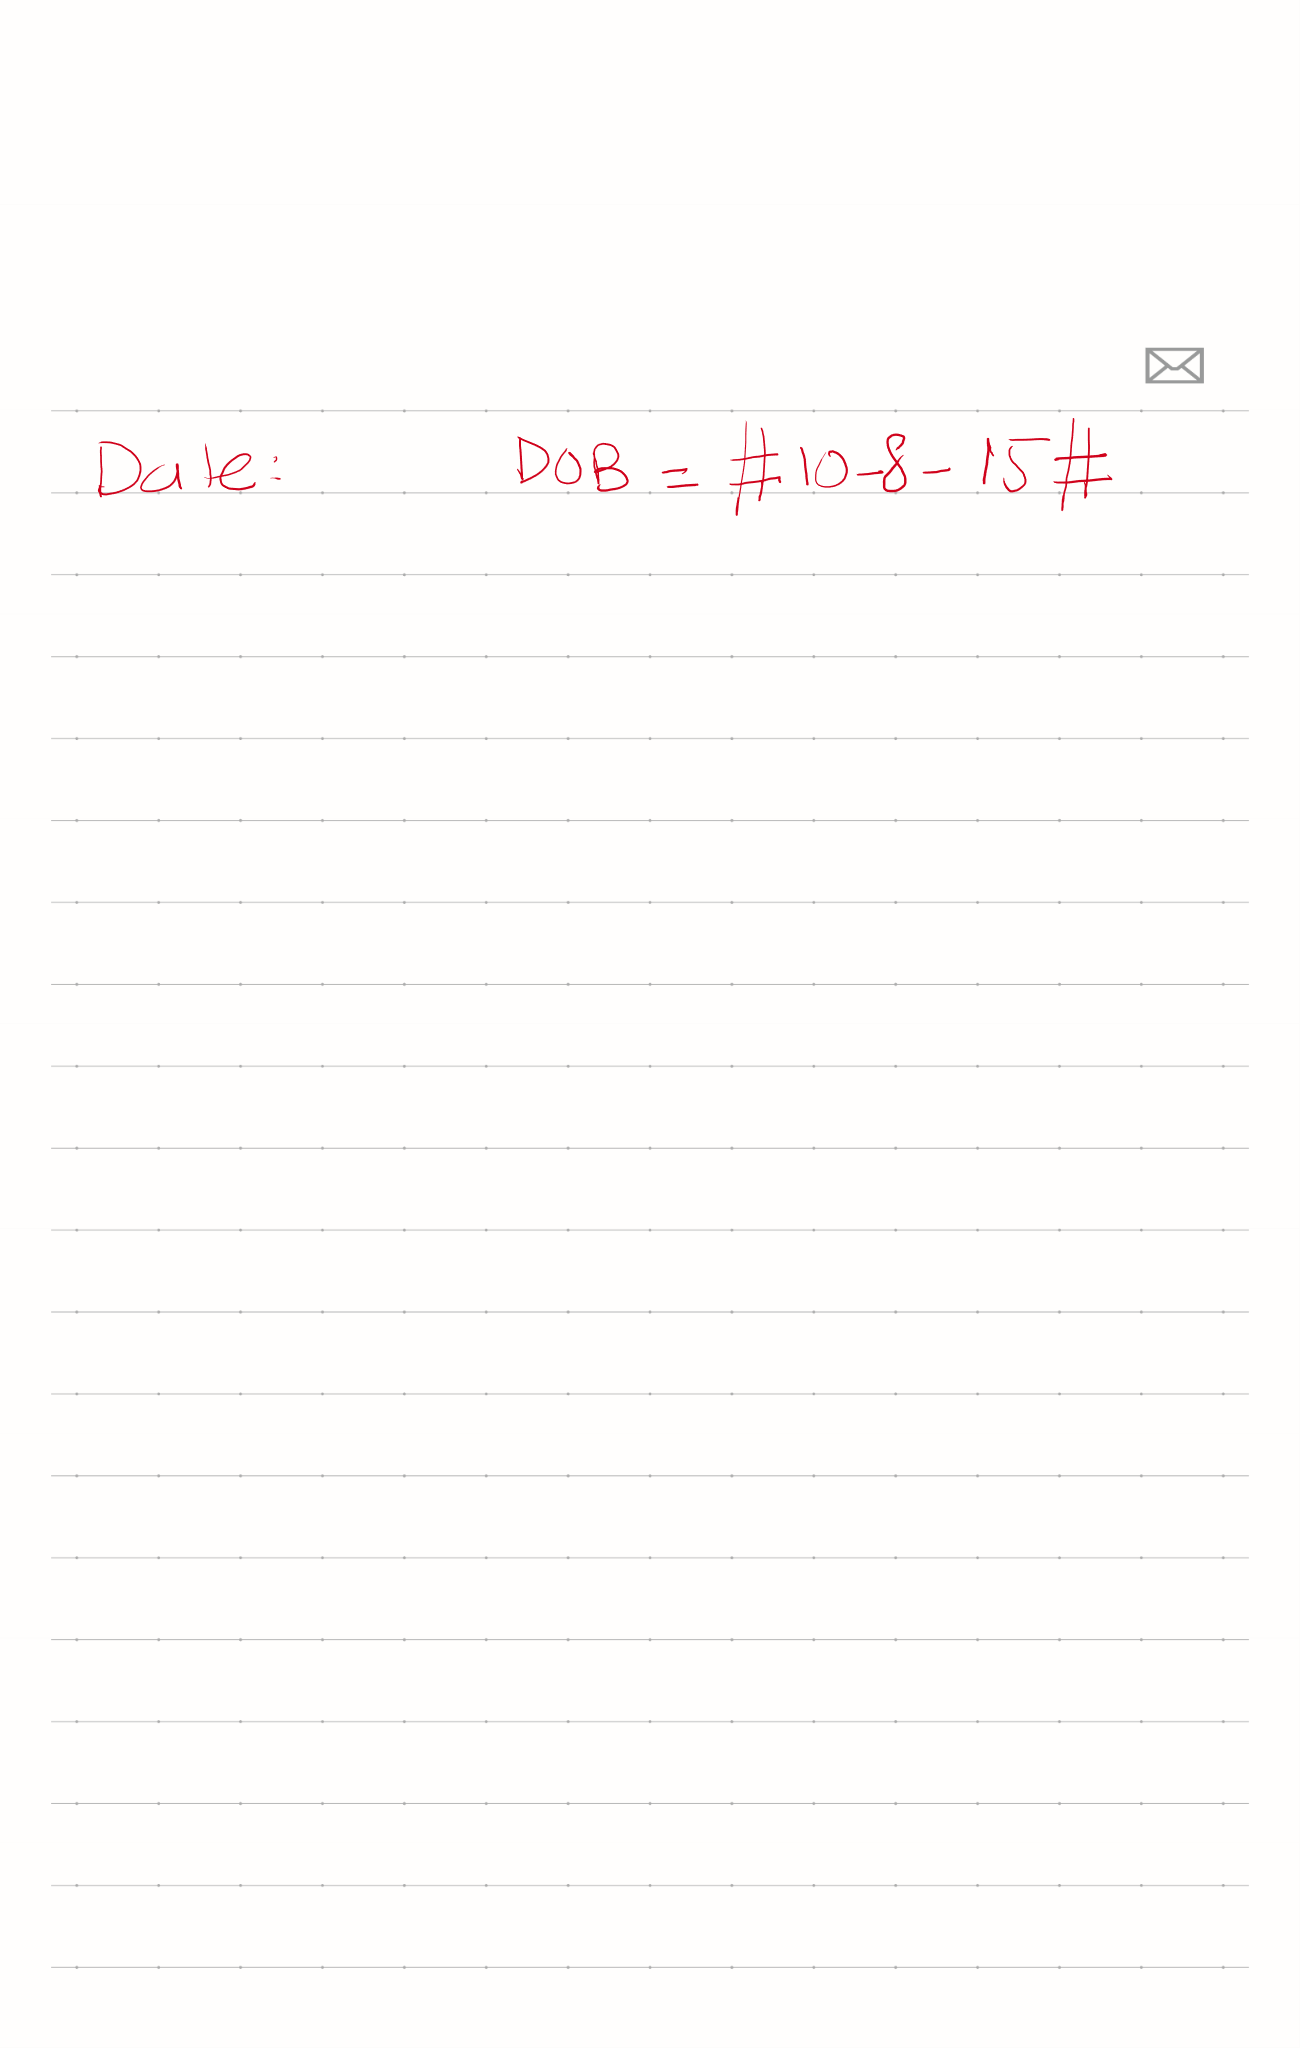 Date: DOB = #10-8-15#